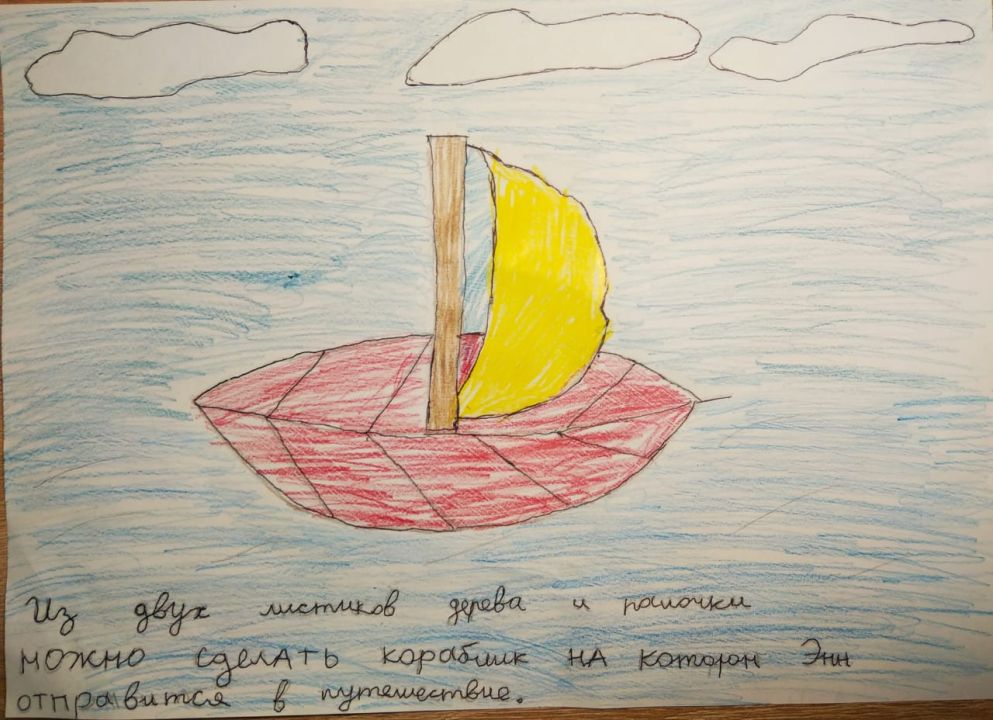 Из двух листиков дерева и палочки
можно сделать кораблик на котором Энн
отправится в путешествие.